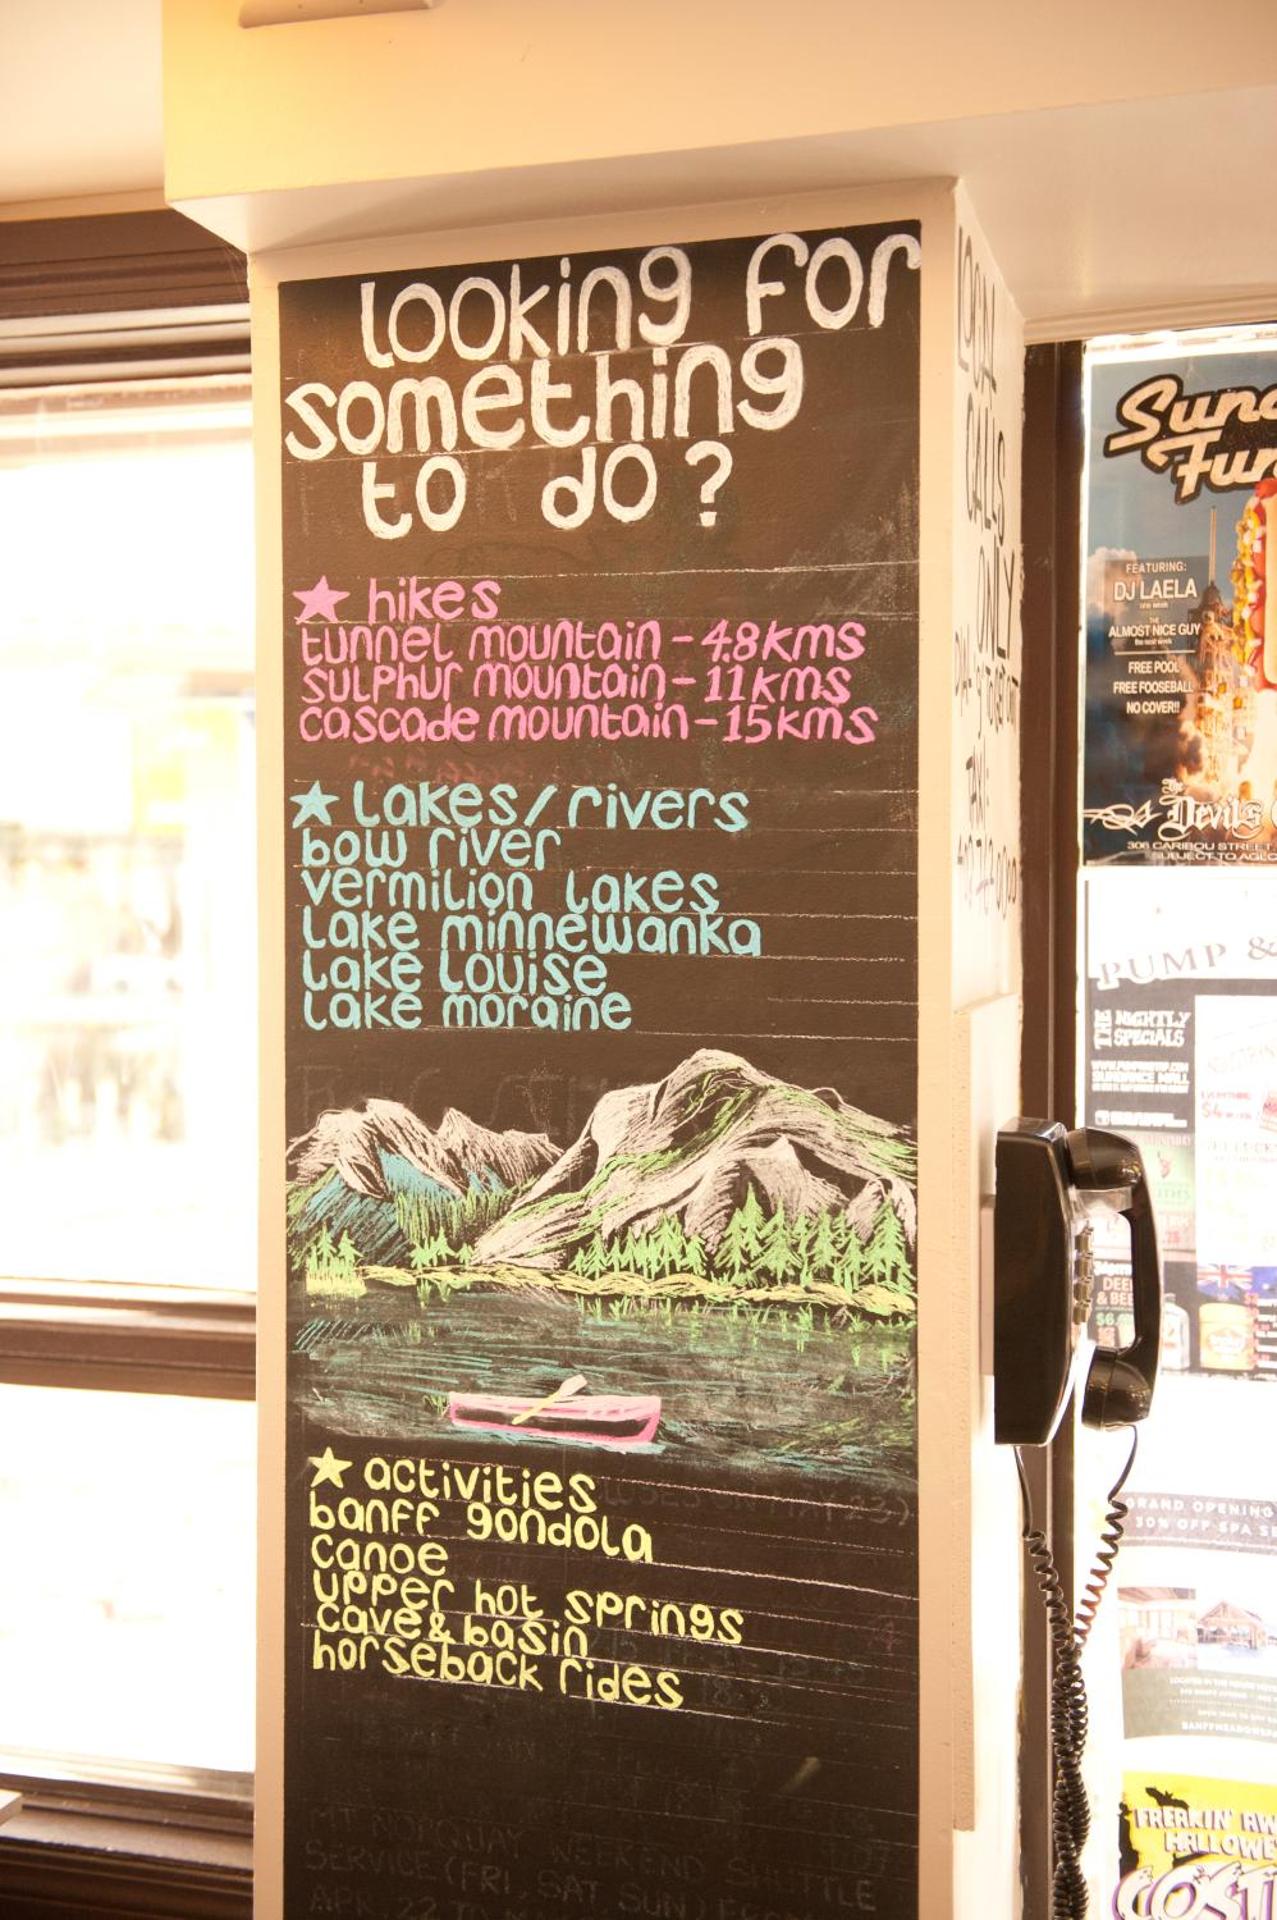 looking for
something
to do?
hikes
tunnel mountain - 4.8kms
sulphur mountain - 11kms
cascade mountain - 15kms
lakes/rivers
bow river
vermilion lakes
lake minnewanka
lake louise
lake moraine
activities
banff gondola
canoe
upper hot springs
cave & basin
horseback rides
WEEKEND SHUTTLE
SERVICE (FRI, SAT, SUN)
APR. 22
LOCAL
CALLS
ONLY
TAXI:
FEATURING:
DJ LAELA
THE
ALMOST NICE GUY
FREE POOL
FREE FOOSEBALL
NO COVER!!
The
Devil's
306 CARIBOU STREET
SUBJECT TO AGLC
PUMP &
THE NIGHTLY
SPECIALS
GRAND OPENING
30% OFF SPA
FREAKIN'